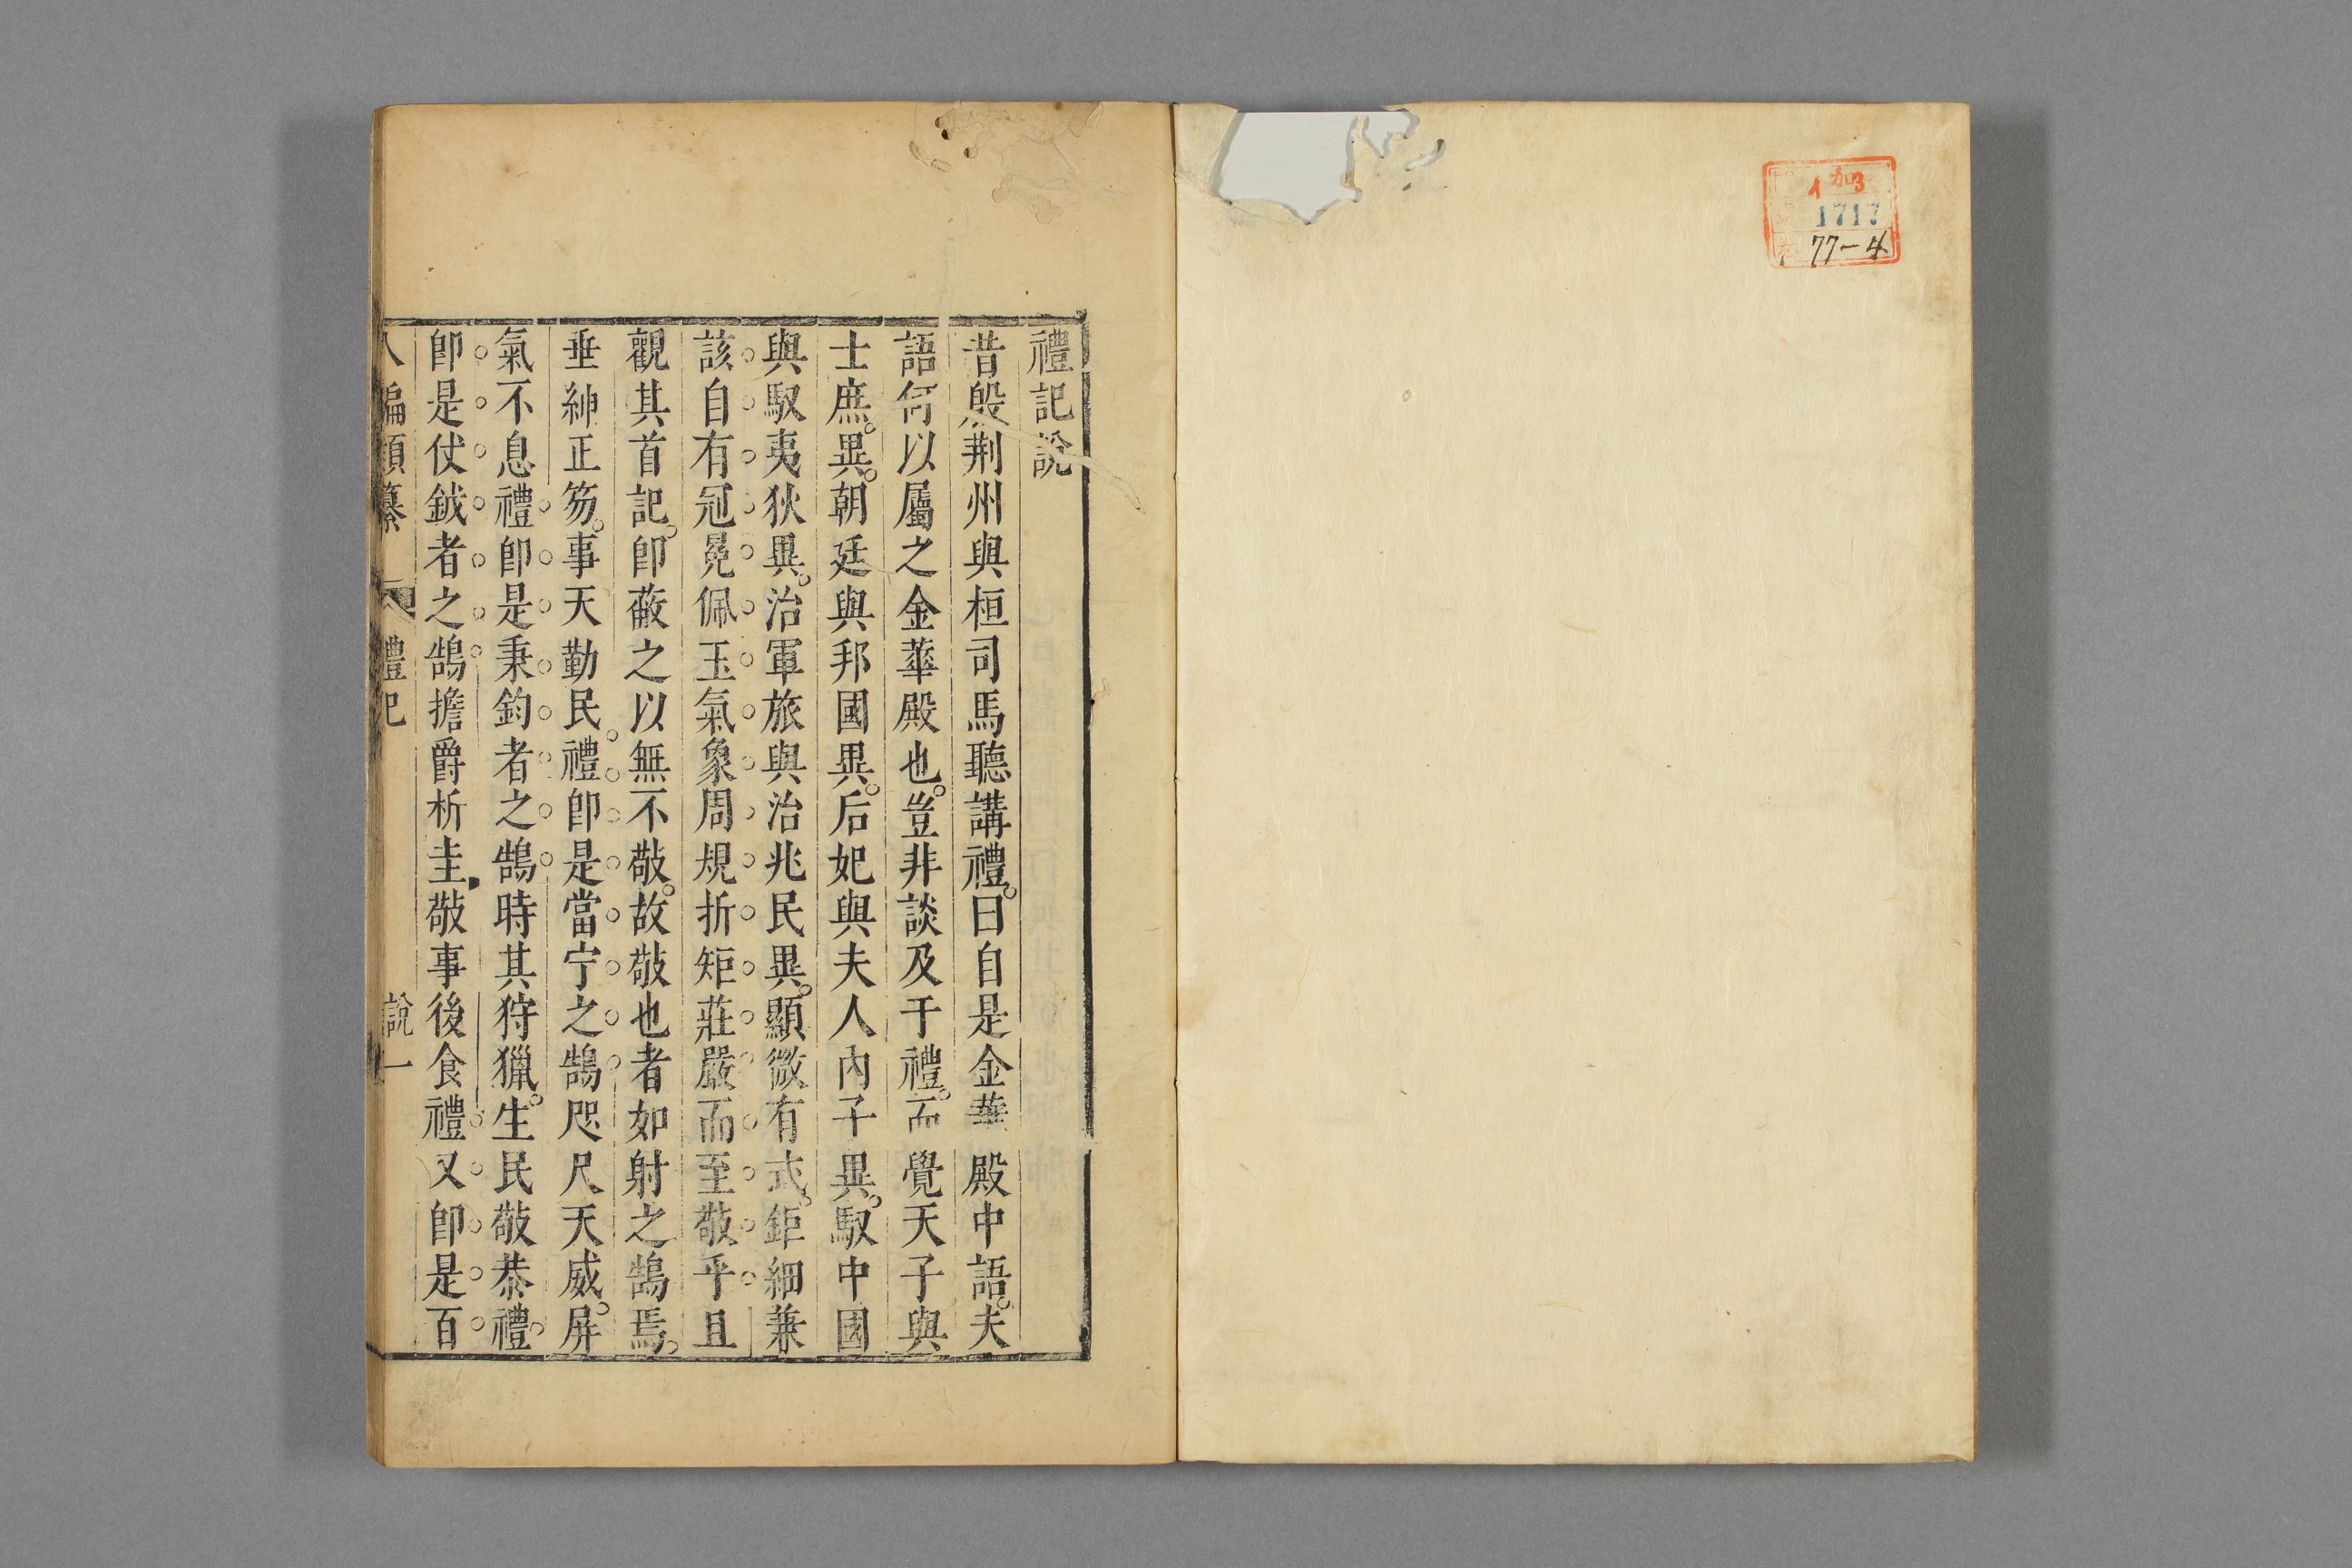 加3
1717
77-4
禮記說
昔殷荆州與桓司馬聽講禮。曰自是金華殿中語。夫
語何以屬之金華殿也。豈非談及于禮。而覺天子與
士庶。異。朝廷與邦國異。后妃與夫人內子異。馭中國
與馭夷狄異。治軍旅與治兆民異。顯微有式。鉅細兼
該自有冠冕佩玉氣象周規折矩莊嚴而至敬乎且
觀其首記。卽蔽之以無不敬。故敬也者如射之鵠焉。
垂紳正笏。事天勤民禮卽是當宁之鵠咫尺天威。屏
氣不息禮卽是秉鈞者之鵠時其狩獵。生民敬恭禮
卽是仗鉞者之鵠擔爵析圭敬事後食禮又卽是百
八編類纂 禮記 說一